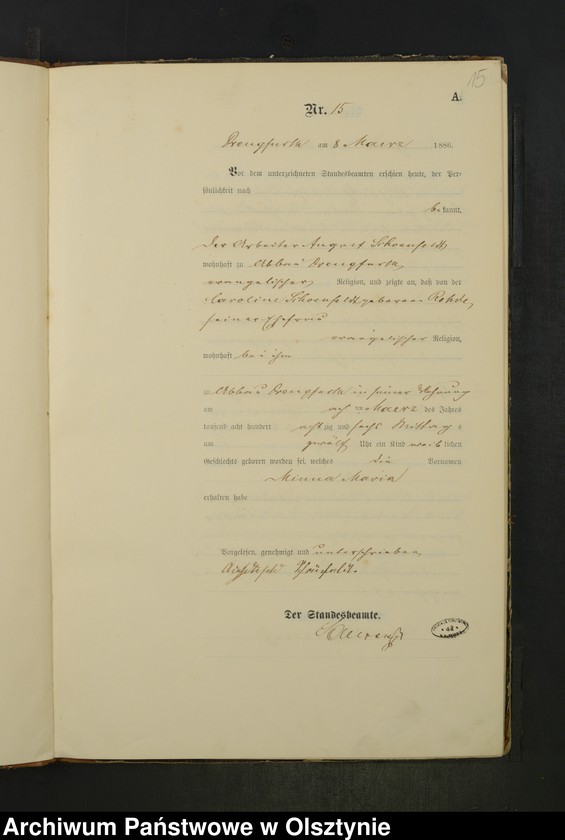 15
A.
Nr. 15
Drengfurth am 8 Maerz 1886.
Vor dem unterzeichneten Standesbeamten erschien heute, der Per-
sönlichkeit nach
bekannt,
der Arbeiter August Schoenfeldt,
wohnhaft zu Abbau Drengfurth,
evangelischer Religion, und zeigte an, daß von der
Caroline Schoenfeldt geborenen Rohde,
seiner Ehefrau
evangelischer Religion,
wohnhaft bei ihm
zu Abbau Drengfurth in seiner Wohnung
am Maerz des Jahres
tausend acht hundert achtzig und sechs Mittags
um zwölf Uhr ein Kind weiblichen
Geschlechts geboren worden sei, welches die Vornamen
Minna Maria
erhalten habe
Vorgelesen, genehmigt und unterschrieben
Der Standesbeamte.
Archiwum Państwowe w Olsztynie